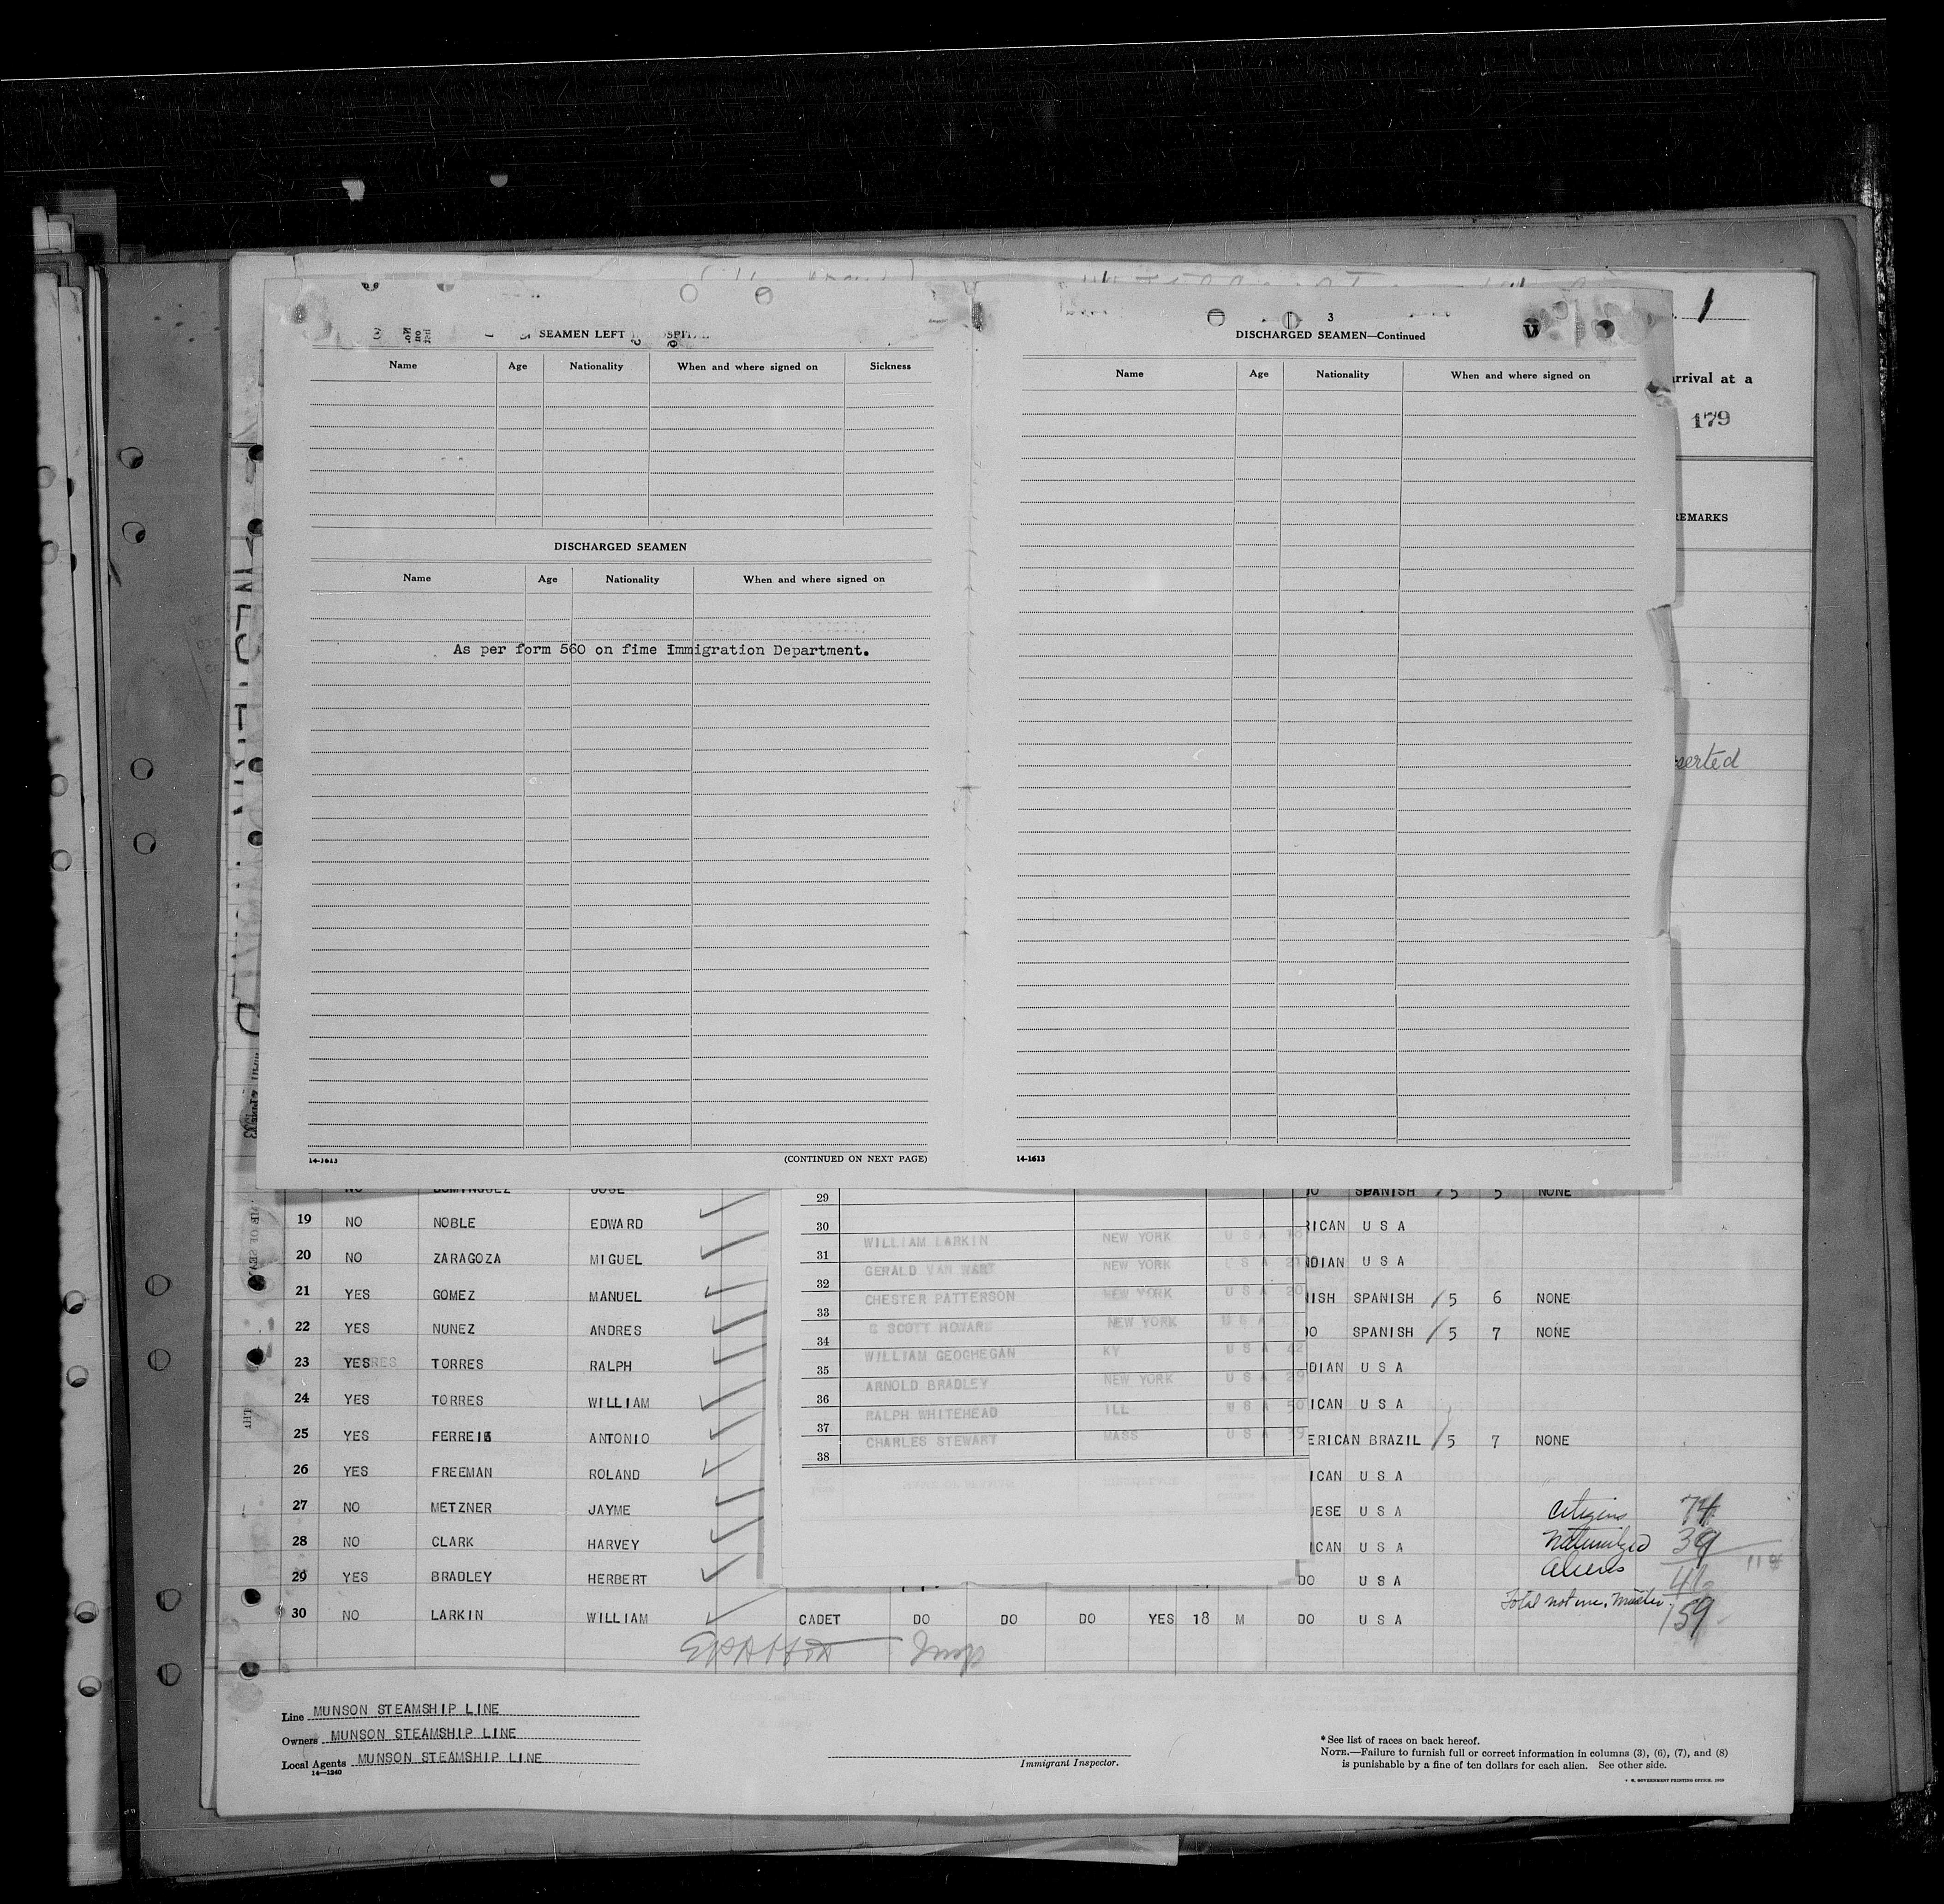 1
SEAMEN LEFT
Name Age Nationality When and where signed on Sickness
DISCHARGED SEAMEN
Name Age Nationality When and where signed on
As per form 560 on fime Immigration Department.
14-1613 (CONTINUED ON NEXT PAGE)
3
DISCHARGED SEAMEN—Continued
Name Age Nationality When and where signed on
14-1613
arrival at a
179
REMARKS
serted
NO DOMINGUEZ JOSE DO SPANISH /5 5 NONE
19 NO NOBLE EDWARD RICAN U S A
20 NO ZARAGOZA MIGUEL NDIAN U S A
21 YES GOMEZ MANUEL NISH SPANISH /5 6 NONE
22 YES NUNEZ ANDRES DO SPANISH /5 7 NONE
23 YES TORRES RALPH DIAN U S A
24 YES TORRES WILLIAM ICAN U S A
25 YES ANTONIO ERICAN BRAZIL /5 7 NONE
26 YES FREEMAN ROLAND ICAN U S A
27 NO METZNER JAYME UESE U S A
28 NO CLARK HARVEY ICAN U S A
29 YES BRADLEY HERBERT DO U S A
30 NO LARKIN WILLIAM CADET DO DO DO YES 18 M DO U S A
29
30
WILLIAM LARKIN NEW YORK U S A
31
GERALD VAN WART NEW YORK U S A 21
32
CHESTER PATTERSON NEW YORK U S A 20
33
G SCOTT HOWARD NEW YORK U S A
34
WILLIAM GEOGHEGAN KY U S A 42
35
ARNOLD BRADLEY NEW YORK U S A 29
36
RALPH WHITEHEAD ILL U S A 50
37
CHARLES STEWART MASS U S A
38
Citizens 74
Naturalized 39
Aliens
Total not inc. Master 159
Line MUNSON STEAMSHIP LINE
Owners MUNSON STEAMSHIP LINE
Local Agents MUNSON STEAMSHIP LINE
14—1240
Immigrant Inspector.
*See list of races on back hereof.
NOTE.—Failure to furnish full or correct information in columns (3), (6), (7), and (8)
is punishable by a fine of ten dollars for each alien. See other side.